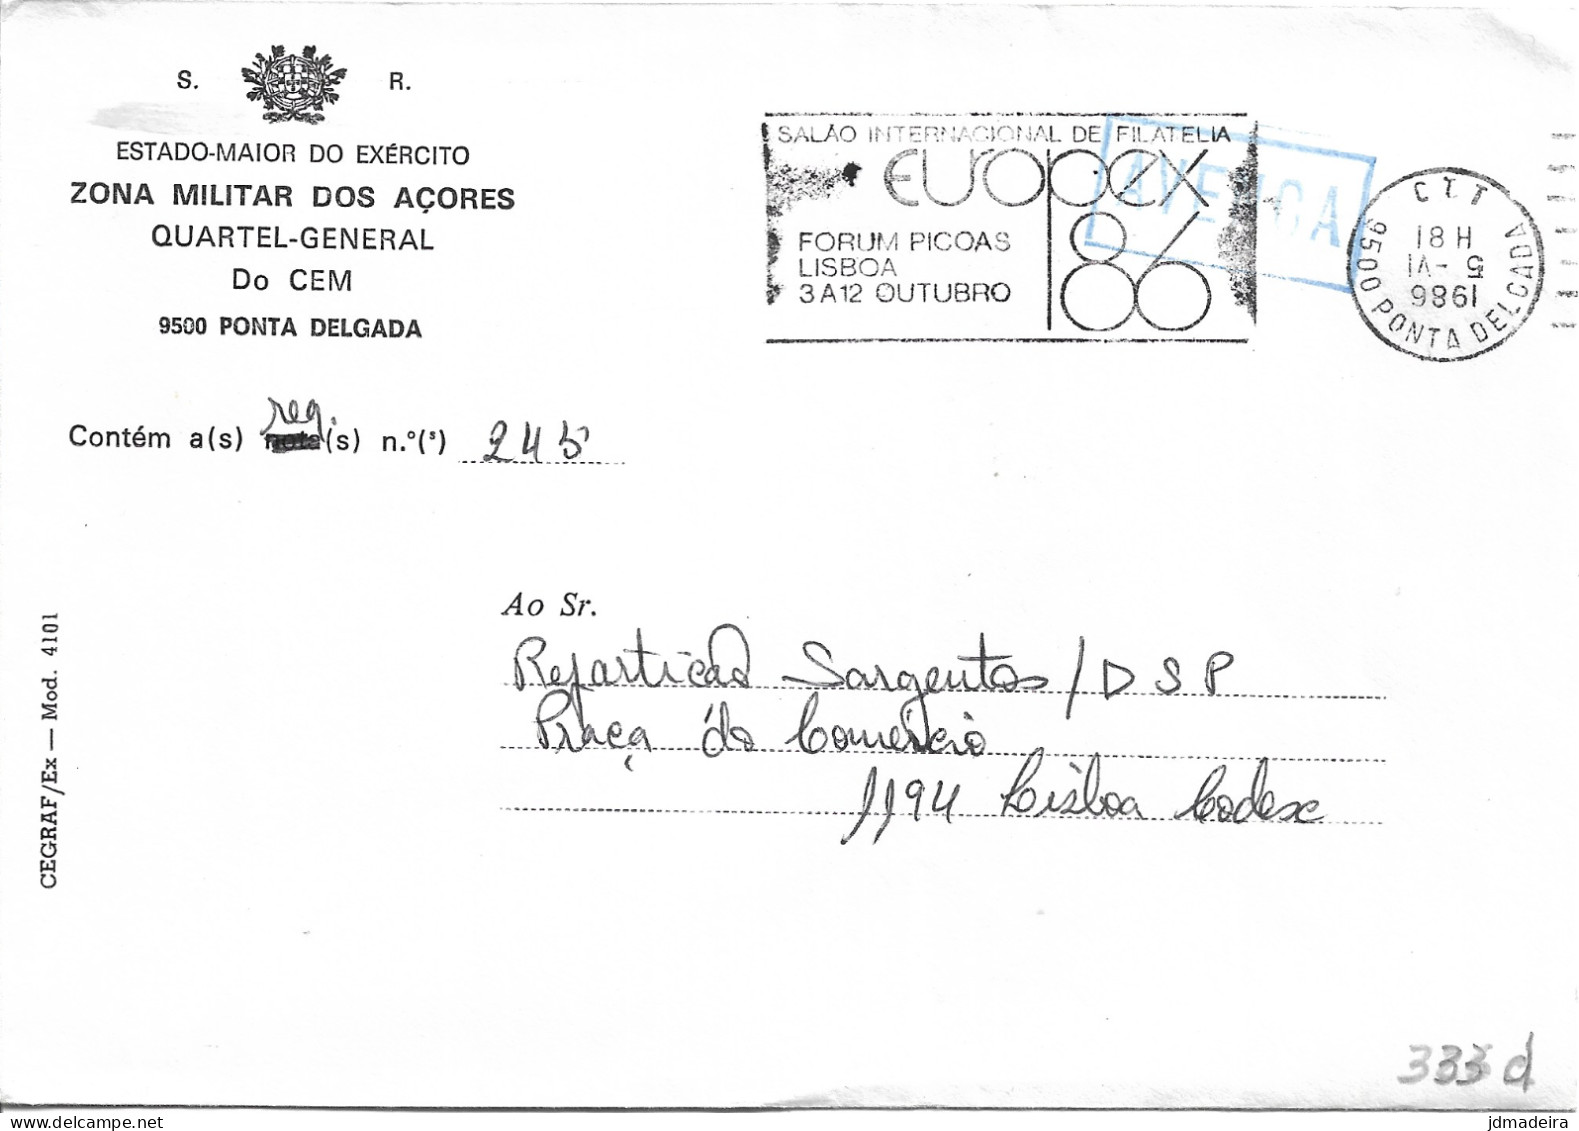 S. R.
ESTADO-MAIOR DO EXÉRCITO
ZONA MILITAR DOS AÇORES
QUARTEL-GENERAL
Do CEM
9500 PONTA DELGADA
Contém a(s) reg.(s) n.º(ˢ) 245
SALÃO INTERNACIONAL DE FILATELIA
EUROPEX
86
FORUM PICOAS
LISBOA
3 A 12 OUTUBRO
AVENÇA
CTT
18 H
5-VI
1986
9500 PONTA DELGADA
Ao Sr.
Repartição Sargentos / DSP
Praça do Comércio
1194 Lisboa Codex
CEGRAF/Ex — Mod. 4101
333 d
jdmadeira
myCard.delcampe.net